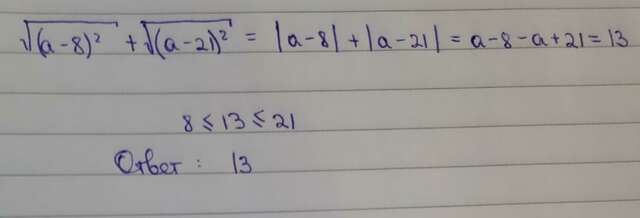 √(a-8)² + √(a-21)² = |a-8| + |a-21| = a-8-a+21 = 13
8 ≤ 13 ≤ 21
Ответ : 13